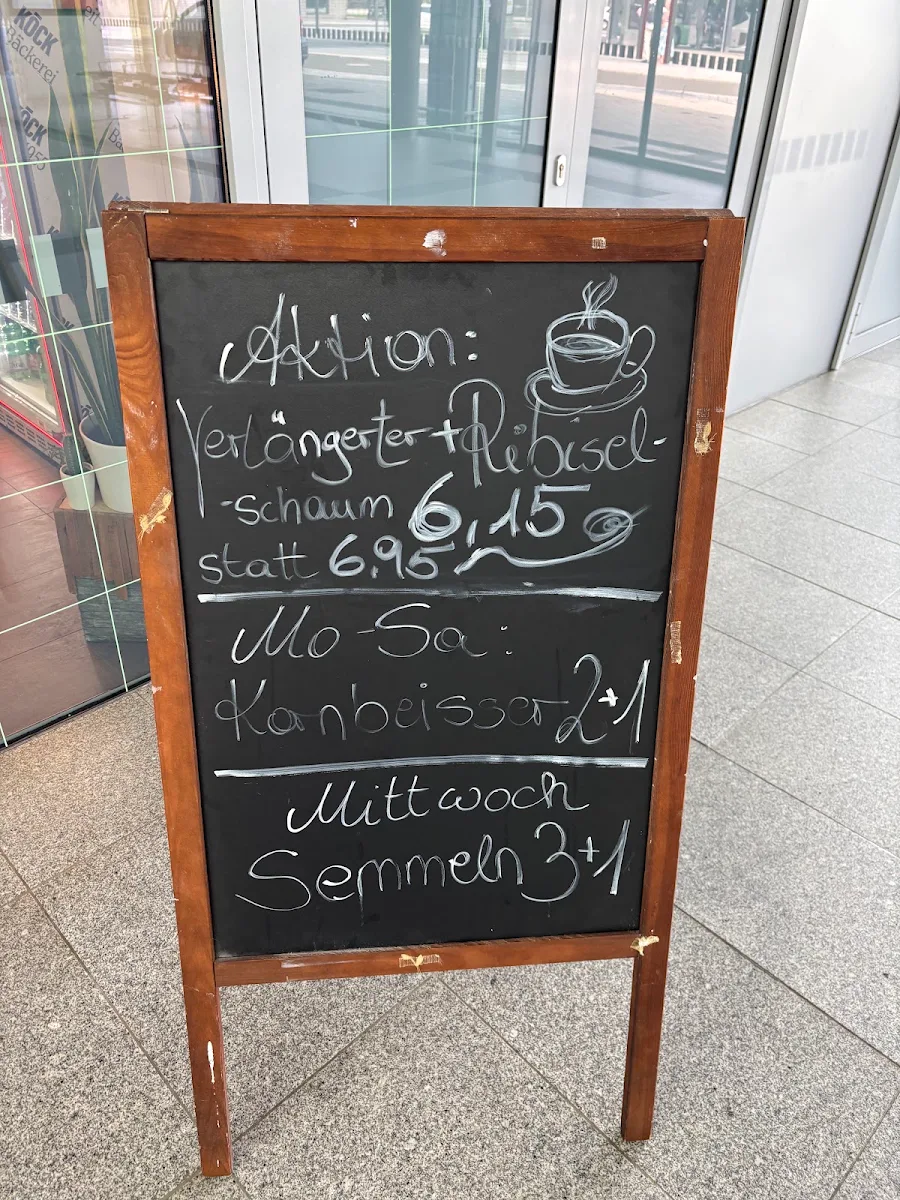 KÖCK
Bäckerei
KÖCK
Aktion:
Verlängerter + Ribisel-
-schaum 6,15
statt 6,95
Mo-Sa:
Kornbeisser 2+1
Mittwoch
Semmeln 3+1